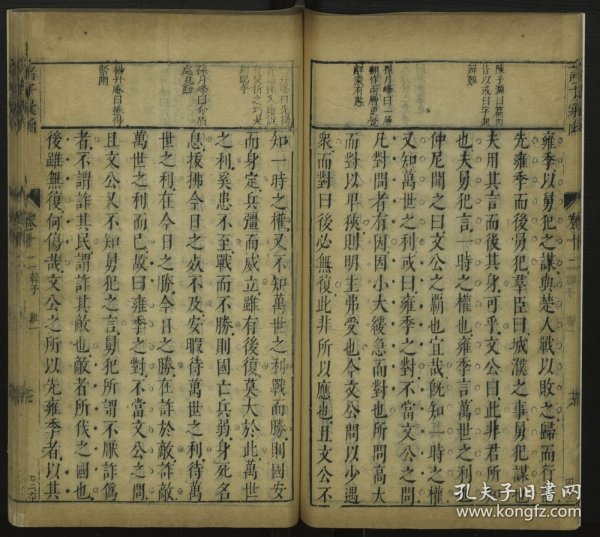 雍季以舅犯之謀與楚人戰以敗之歸而行爵
先雍季而後舅犯羣臣曰城濮之事舅犯謀也
夫用其言而後其身可乎文公曰此非君所知
也夫舅犯言一時之權也雍季言萬世之利也
仲尼聞之曰文公之霸也宜哉既知一時之權
又知萬世之利或曰雍季之對不當文公之問
凡對問者有因因小大緩急而對也所問高大
而對以卑狹則明主弗受也今文公問以少遇
衆而對曰後必無復此非所以應也且文公不
知一時之權又不知萬世之利戰而勝則國安
而身定兵彊而威立雖有後復莫大於此萬世
之利奚患不至戰而不勝則國亡兵弱身死名
息拔拂今日之死不及安暇待萬世之利待萬
世之利在今日之勝今日之勝在詐於敵詐敵
萬世之利而已故曰雍季之對不當文公之問
且文公又不知舅犯之言舅犯所謂不厭詐僞
者不謂詐其民謂詐其敵也敵者所伐之國也
後雖無復何傷哉文公之所以先雍季者以其
卷十二
韓子
難一
孔夫子旧书网
www.kongfz.com